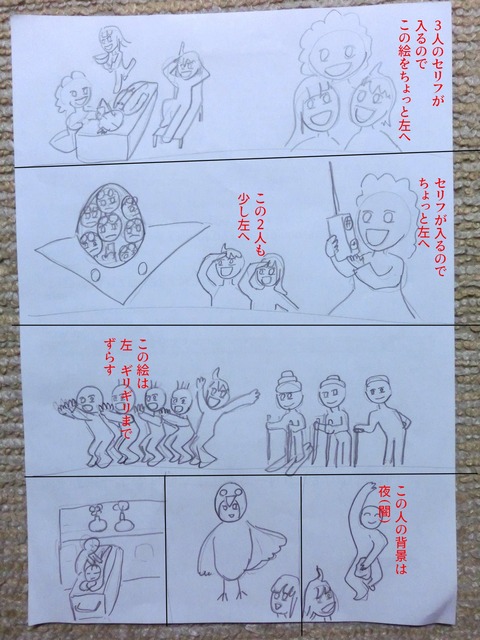 ３人のセリフが
入るので
この絵をちょっと左へ
セリフが入るので
ちょっと左へ
この２人も
少し左へ
この絵は
左　ギリギリまで
ずらす
この人の背景は
夜（闇）